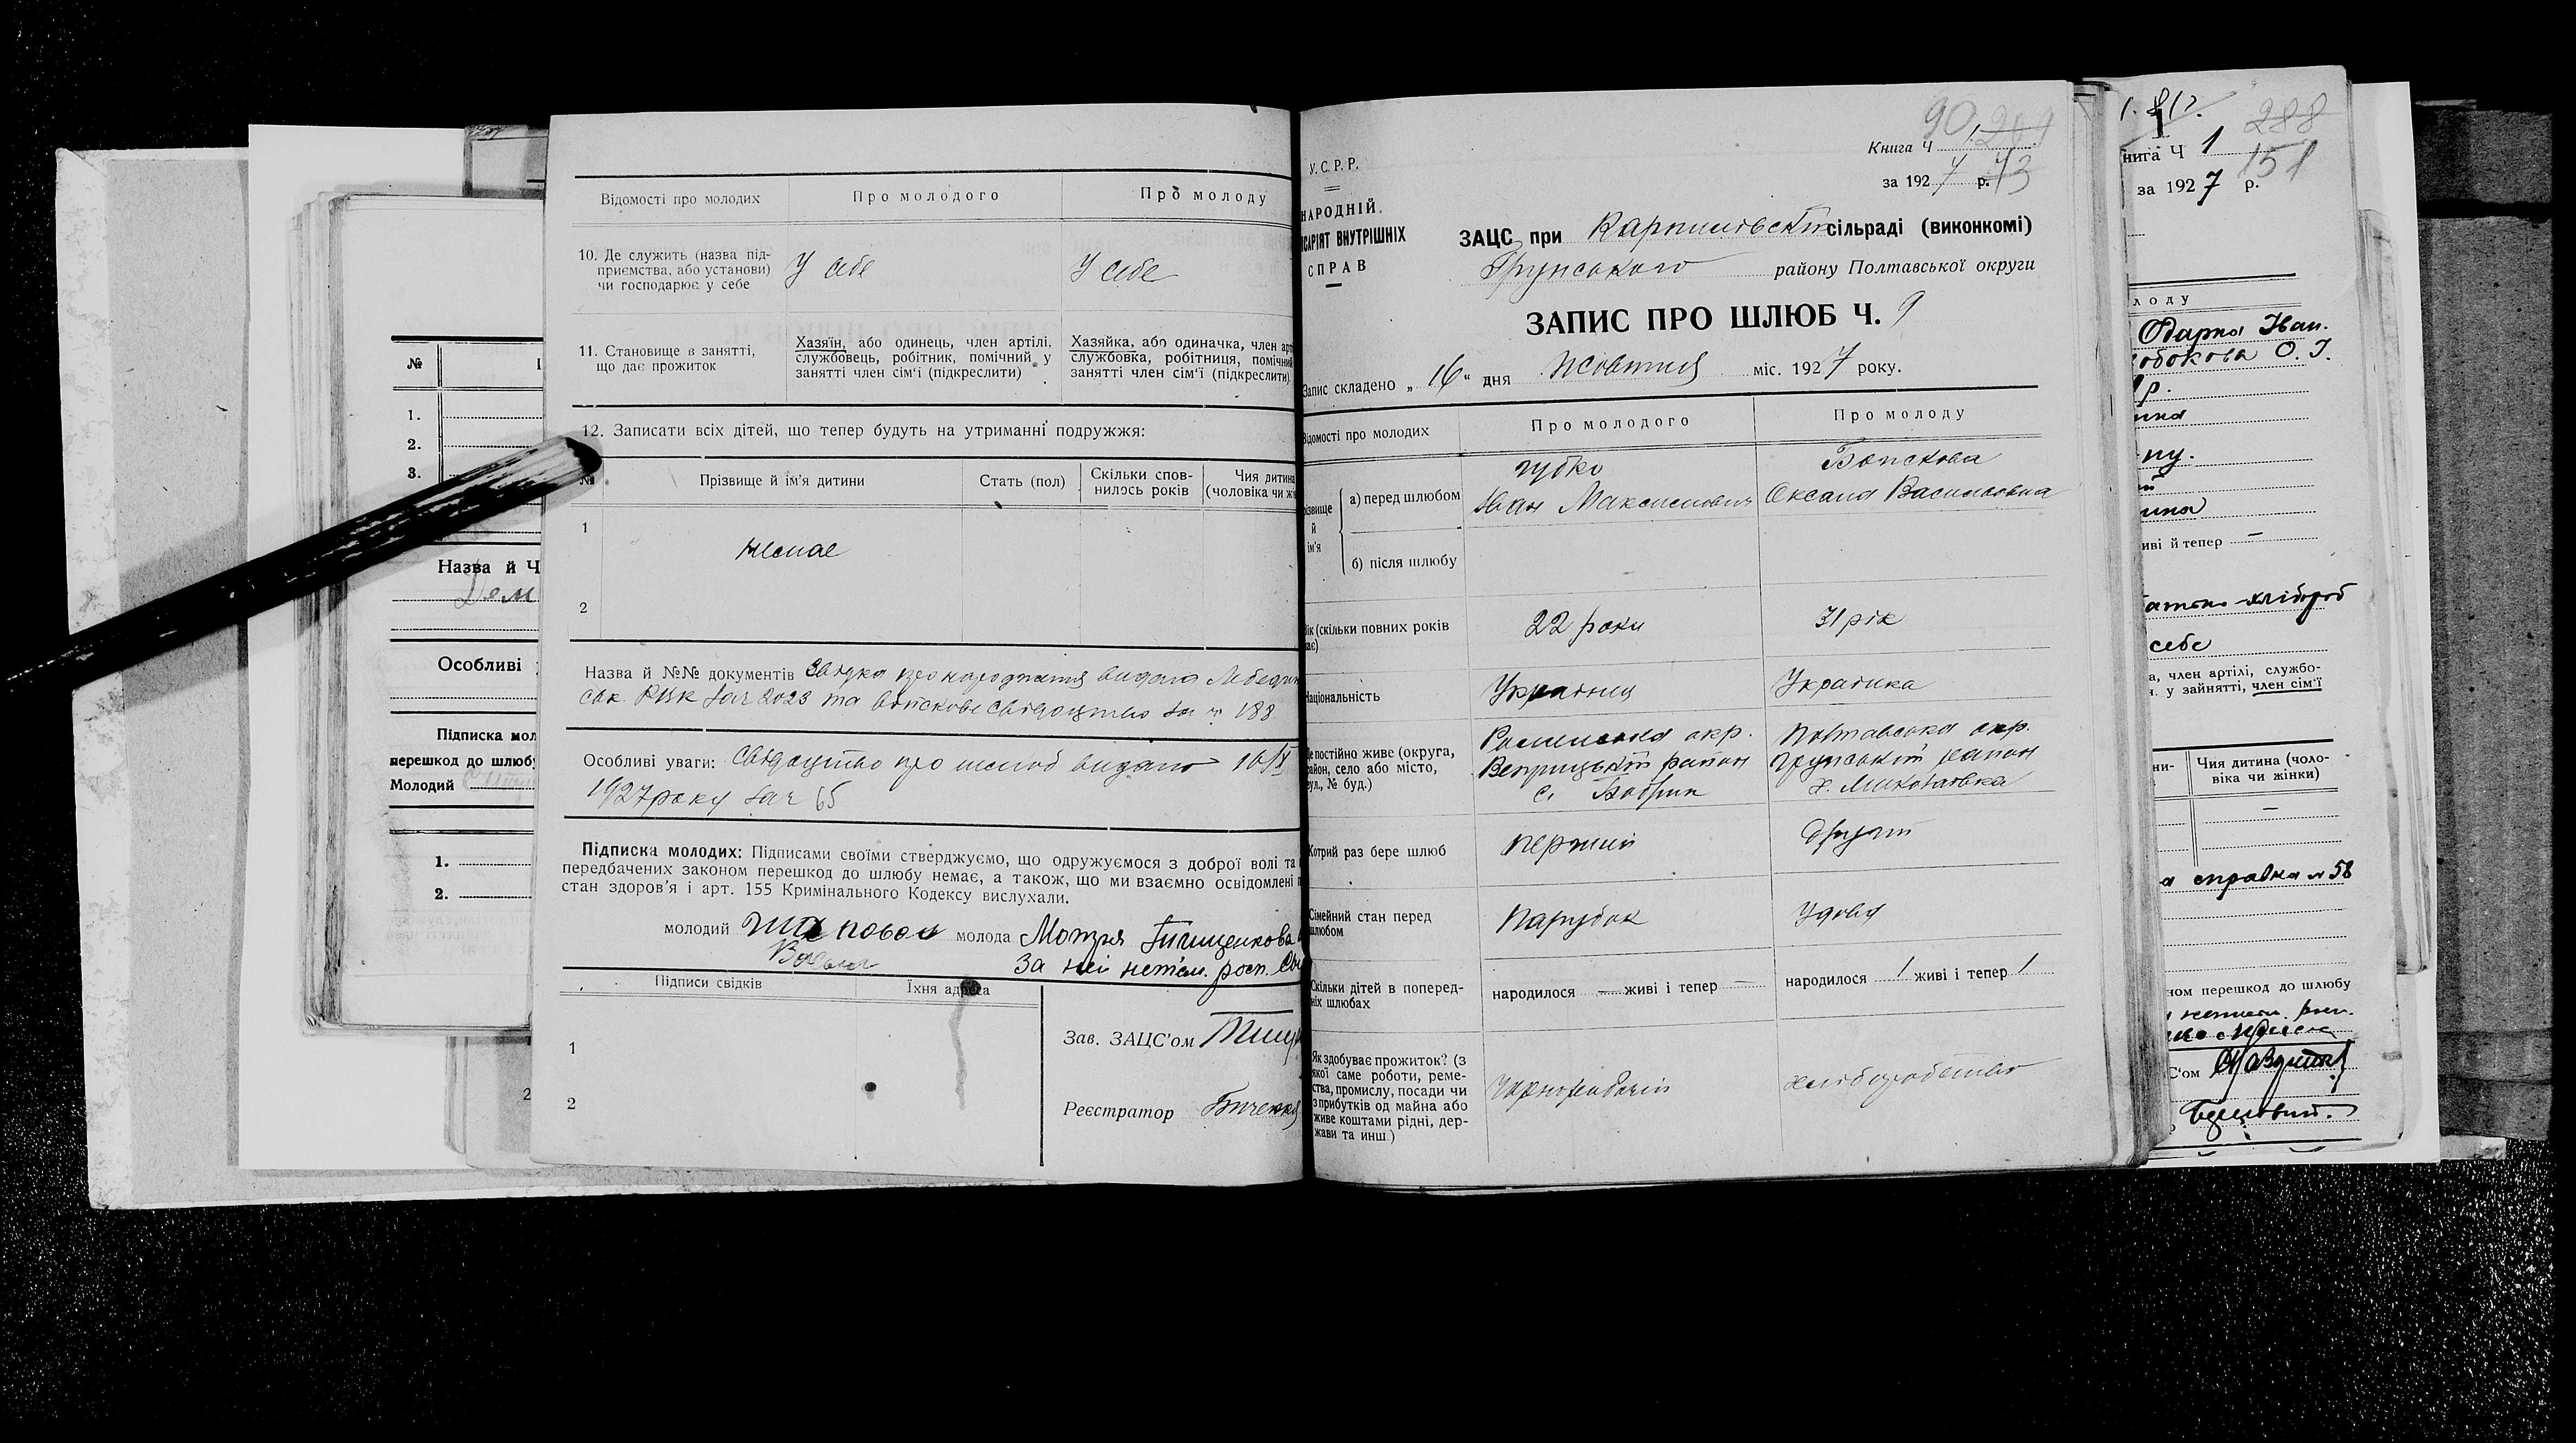 Відомості про молодих
Про молодого
Про молоду
10. Де служить (назва під-
приємства, або установи)
чи господарює у себе
У себе
У себе
11. Становище в занятті,
що дає прожиток
Хазяїн, або одинець, член артілі,
службовець, робітник, помічний у
занятті член сім'ї (підкреслити)
Хазяйка, або одиначка, член арт
службовка, робітниця, помічний
занятті член сім'ї (підкреслити)
12. Записати всіх дітей, що тепер будуть на утриманні подружжя:
№
Прізвище й ім'я дитини
Стать (пол)
Скільки спов-
нилось років
Чия дитина
(чоловіка чи жі
1
немае
2
Назва й №№ документів Звідка про народження видана Лебедин
ськ. РВК за ч 2023 та військове свідоцтво за ч 188
Особливі уваги: Свідоцтво про шлюб видано 16/X
1927 року за ч 65
Підписка молодих: Підписами своїми стверджуємо, що одружуємося з доброї волі та
передбачених законом перешкод до шлюбу немає, а також, що ми взаємно освідомлені п
стан здоров'я і арт. 155 Кримінального Кодексу вислухали.
молодий Шаповал молода Мотря
За неї непісм. росп.
Підписи свідків
Їхня адреса
1
2
Зав. ЗАЦС'ом
Реєстратор
№
1.
2.
3.
Назва й Ч
Дем
Особливі
Підписка мол
перешкод до шлюбу
Молодий
1.
2.
2
У.С.Р.Р.
НАРОДНІЙ
ІСАРІЯТ ВНУТРІШНІХ
СПРАВ
90
Книга Ч 1
за 1927 р. 73
ЗАЦС при Карпилівській сільраді (виконкомі)
Грунського району Полтавської округи
ЗАПИС ПРО ШЛЮБ Ч. 9
Запис складено „16“ дня Жовтня міс. 1927 року.
Відомості про молодих
Про молодого
Про молоду
різвище
й
ім'я
а) перед шлюбом
Губко
Іван Максимович
Оксана Василівна
б) після шлюбу
Вік (скільки повних років
має)
22 роки
31 рік
Національність
Українець
Українка
Де постійно живе (округа,
район, село або місто,
вул., № буд.)
Роменська окр.
Веприцький район
с. Бобрик
Полтавська окр.
Грунський район
х. Миколаївка
Котрий раз бере шлюб
перший
другий
Сімейний стан перед
шлюбом
Парубок
Удова
Скільки дітей в поперед-
ніх шлюбах
народилося — живі і тепер —
народилося 1 живі і тепер 1
Як здобуває прожиток? (з
якої саме роботи, реме-
ства, промислу, посади чи
з прибутків од майна або
живе коштами рідні, дер-
жави та инш.)
Чорноробочий
хліборобство
288
нига Ч 1
151
за 1927 р.
лоду
Одарка Іван.
О. І.
хлібороб
себе
а, член артілі, службо-
у зайнятті, член сім'ї
Чия дитина (чоло-
віка чи жінки)
—
—
а справка № 58
ном перешкод до шлюбу
С'ом
иві й тепер —